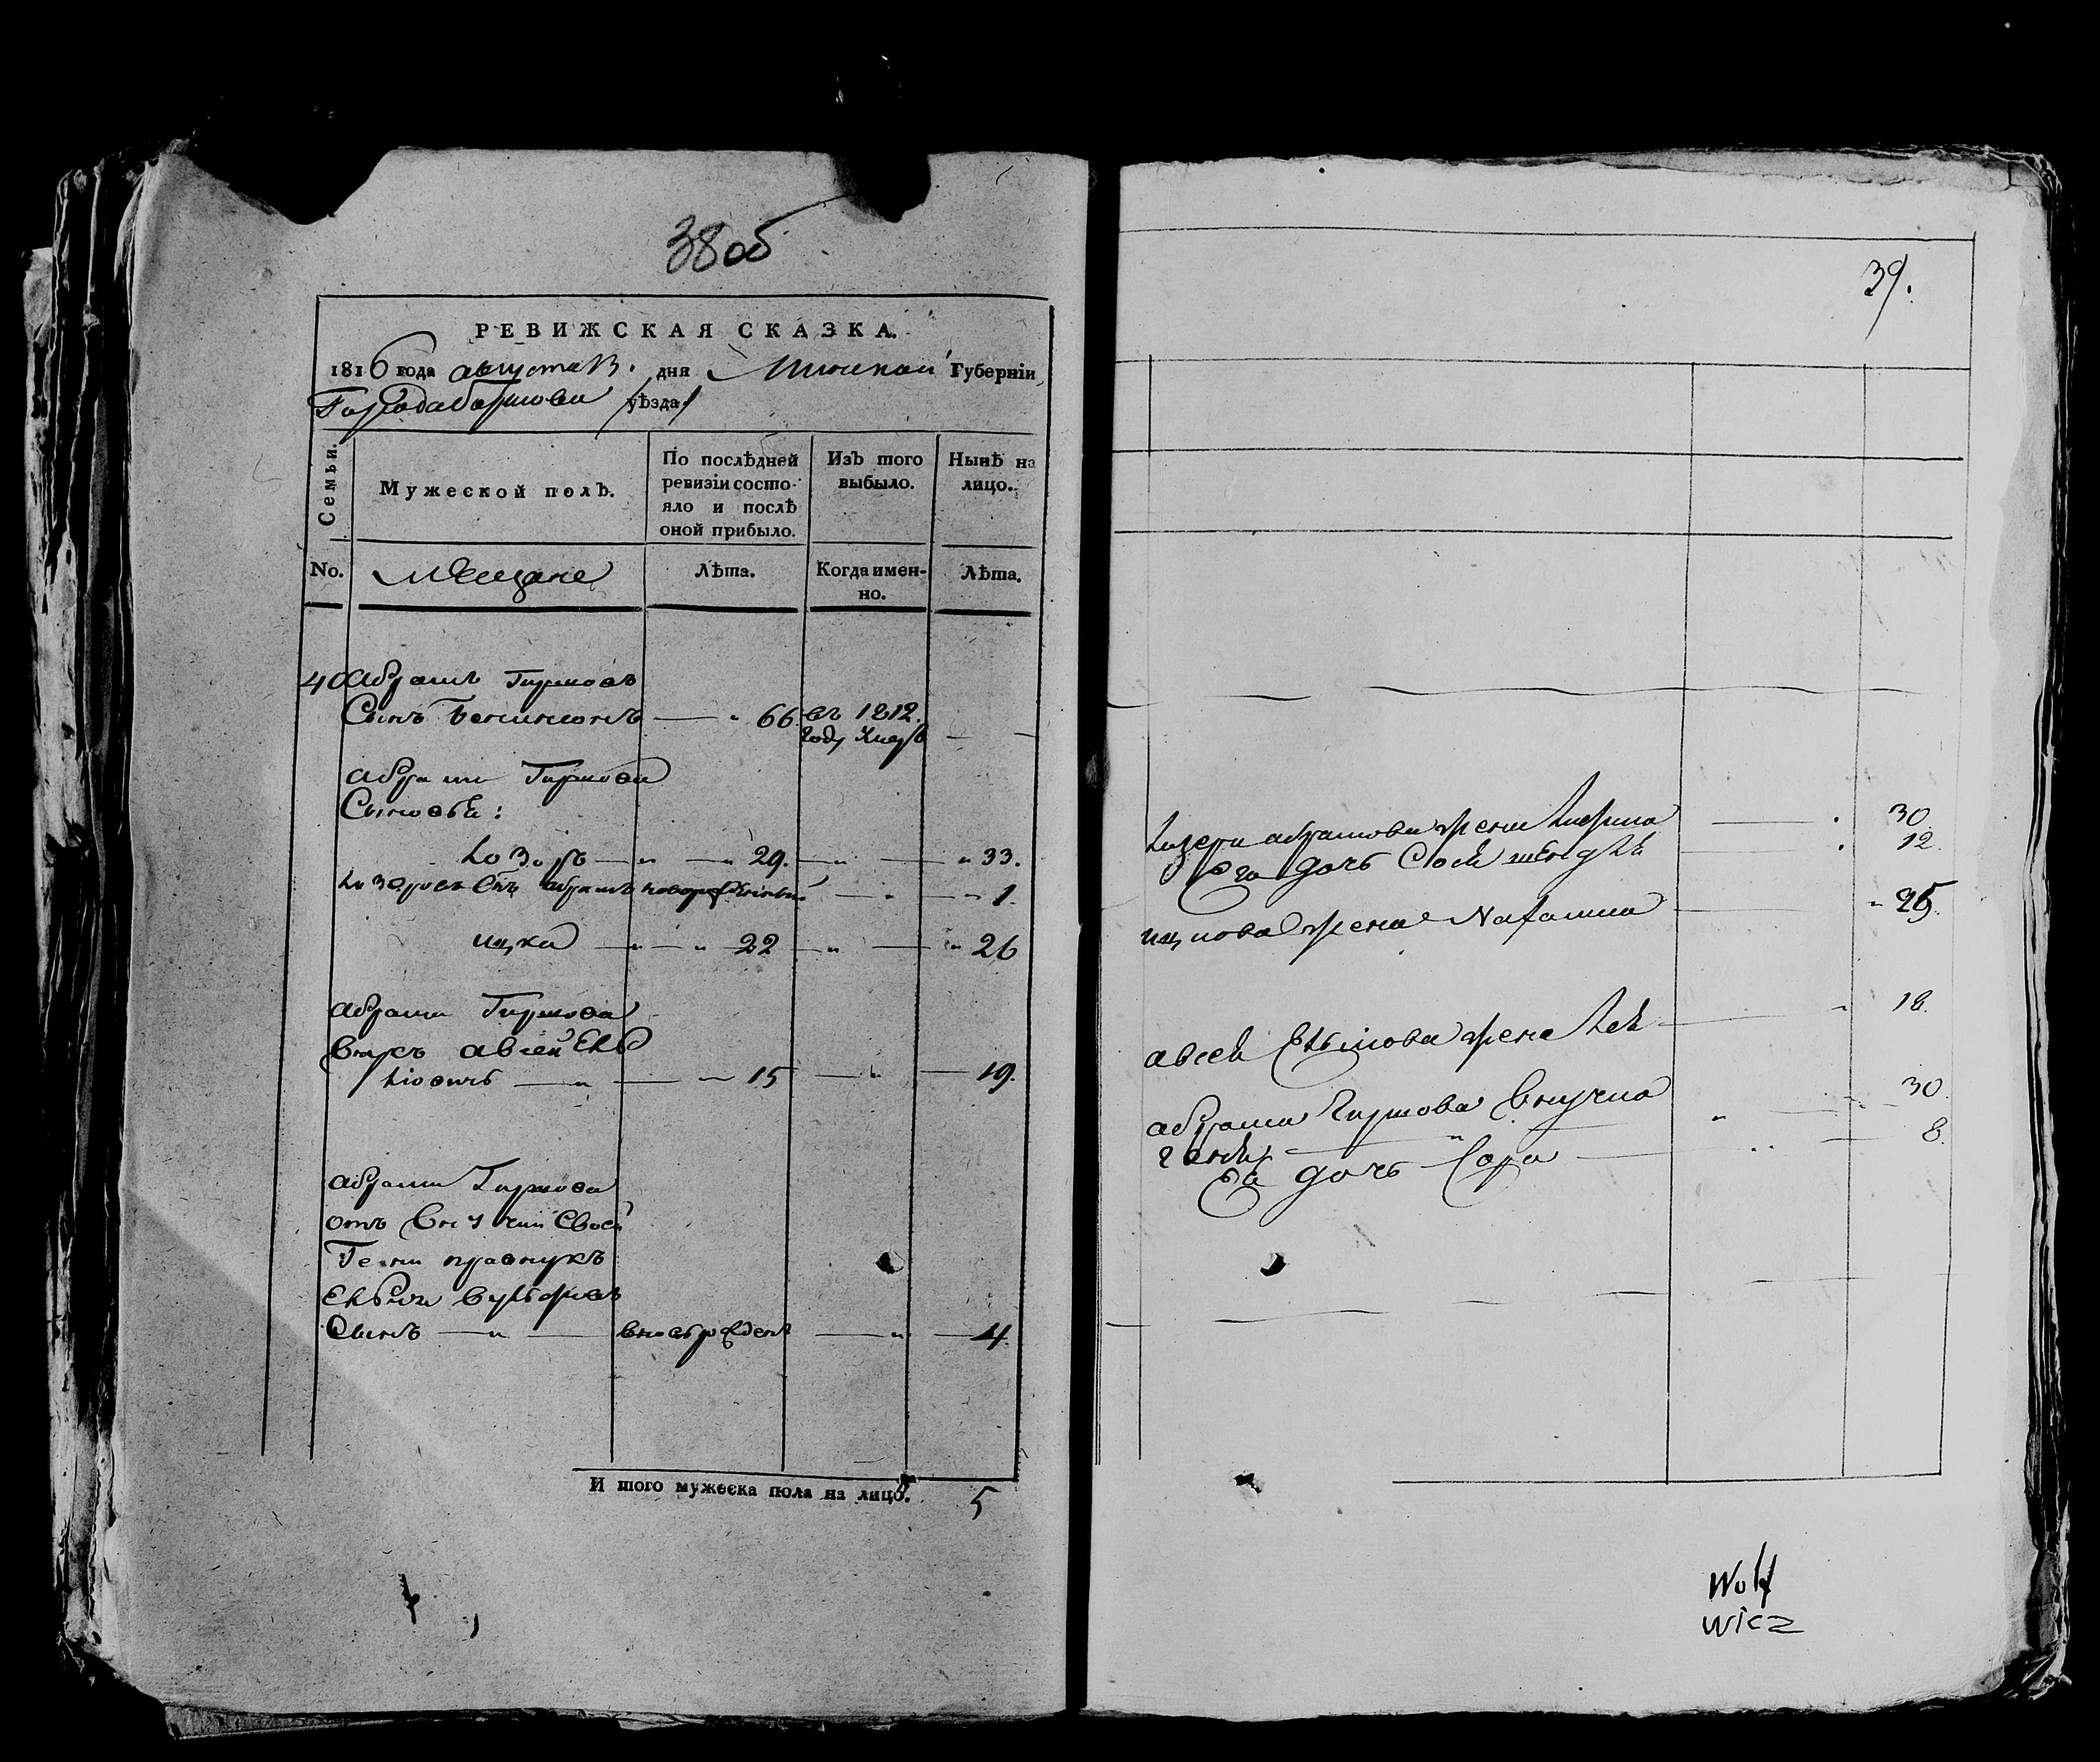 38об
РЕВИЖСКАЯ СКАЗКА.
1816 года августа 13. дня Минской Губерніи
Города Борисова уѣзда
Семьи.
Мужеской полъ.
По послѣдней ревизіи состояло и послѣ оной прибыло.
Изъ того выбыло.
Нынѣ на лицо.
No.
Мещане
Лѣта.
Когда именно.
Лѣта.
40 Абрамъ Гиршовъ
Сынъ 66. въ 1812.
году
Абрама Гиршова
Сыновья:
Лозоръ 29. 33.
Лозоровъ Сынъ Абрамъ новорожденный 1.
Ицка 22 26
Абрама Гиршова
Внукъ Авсей
15 19.
Абрама Гиршова
отъ Внучки Своей
Гени правнукъ
Сынъ вновьрожденъ 4.
И того мужеска пола на лицо. 5
39.
Лизера Абрамова жена 30.
Его дочь 12.
Ицкова жена 25.
Авсея жена Лея 18.
Абрама Гиршова Внучка 30.
Геня
Ея дочь Сора 8.
Wolf
wicz